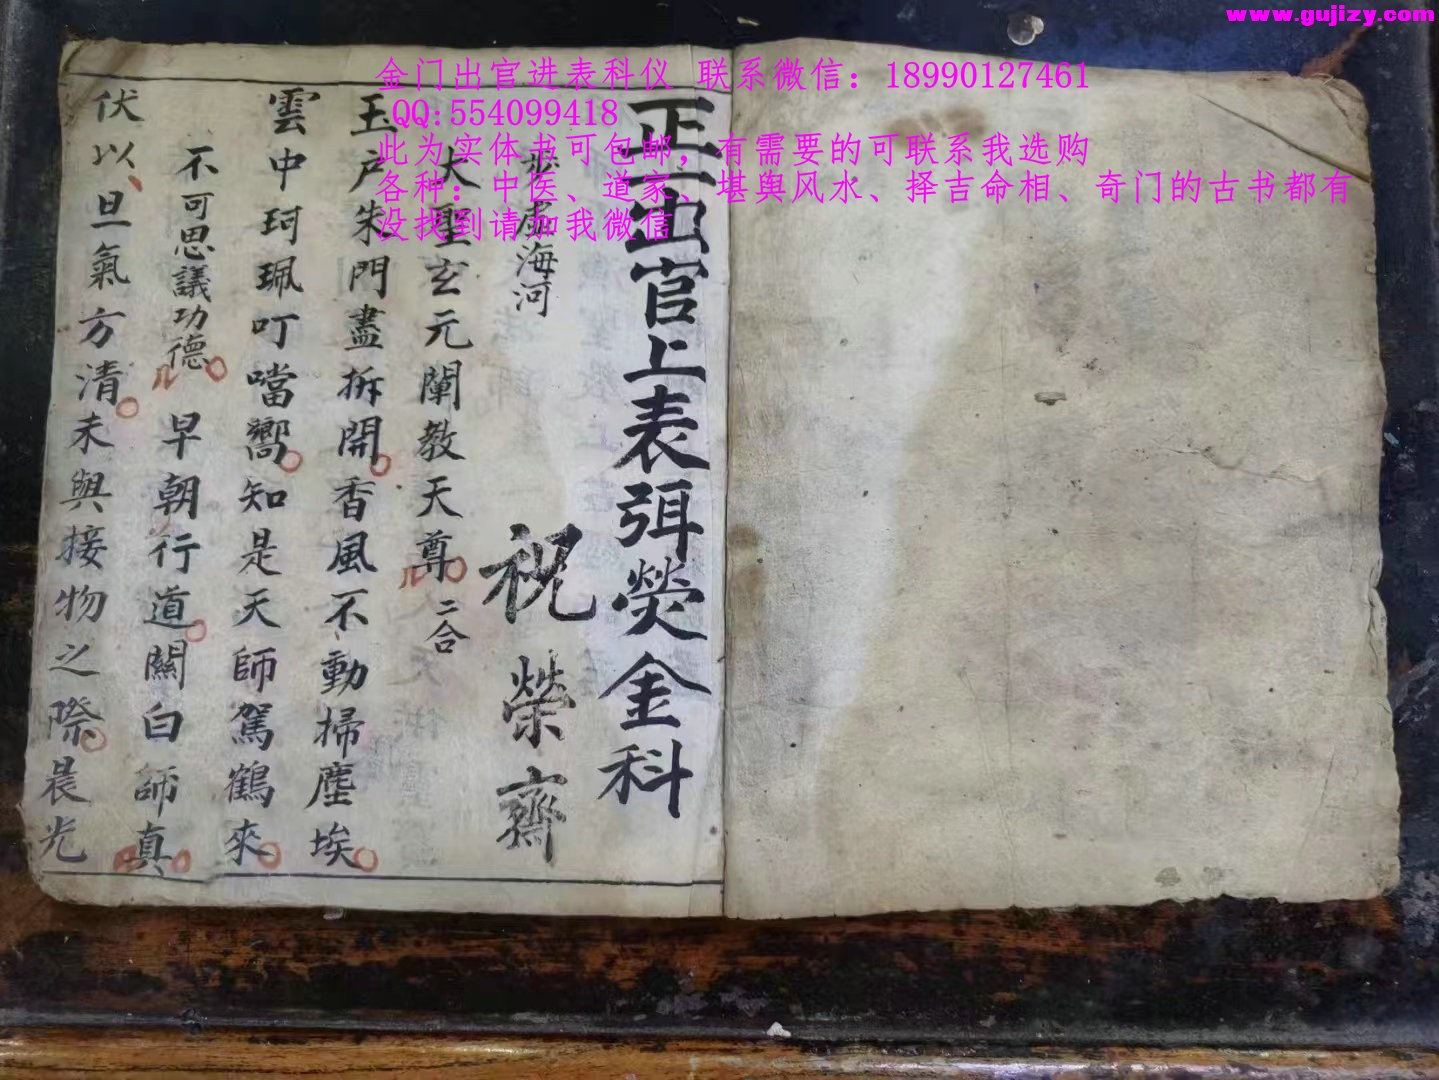 www.gujizy.com
金门出官进表科仪 联系微信：18990127461
QQ:554099418
此为实体书可包邮，有需要的可联系我选购
各种：中医、道家、堪舆风水、择吉命相、奇门的古书都有
没找到请加我微信
正一出官上表弭熒金科
步虛海河
祝榮齋
大聖玄元闡教天尊 二合
玉戶朱門盡拆開香風不動掃塵埃
雲中珂珮叮噹嚮知是天師駕鶴來
不可思議功德 早朝行道關白師真
伏以旦氣方清未與接物之際晨光